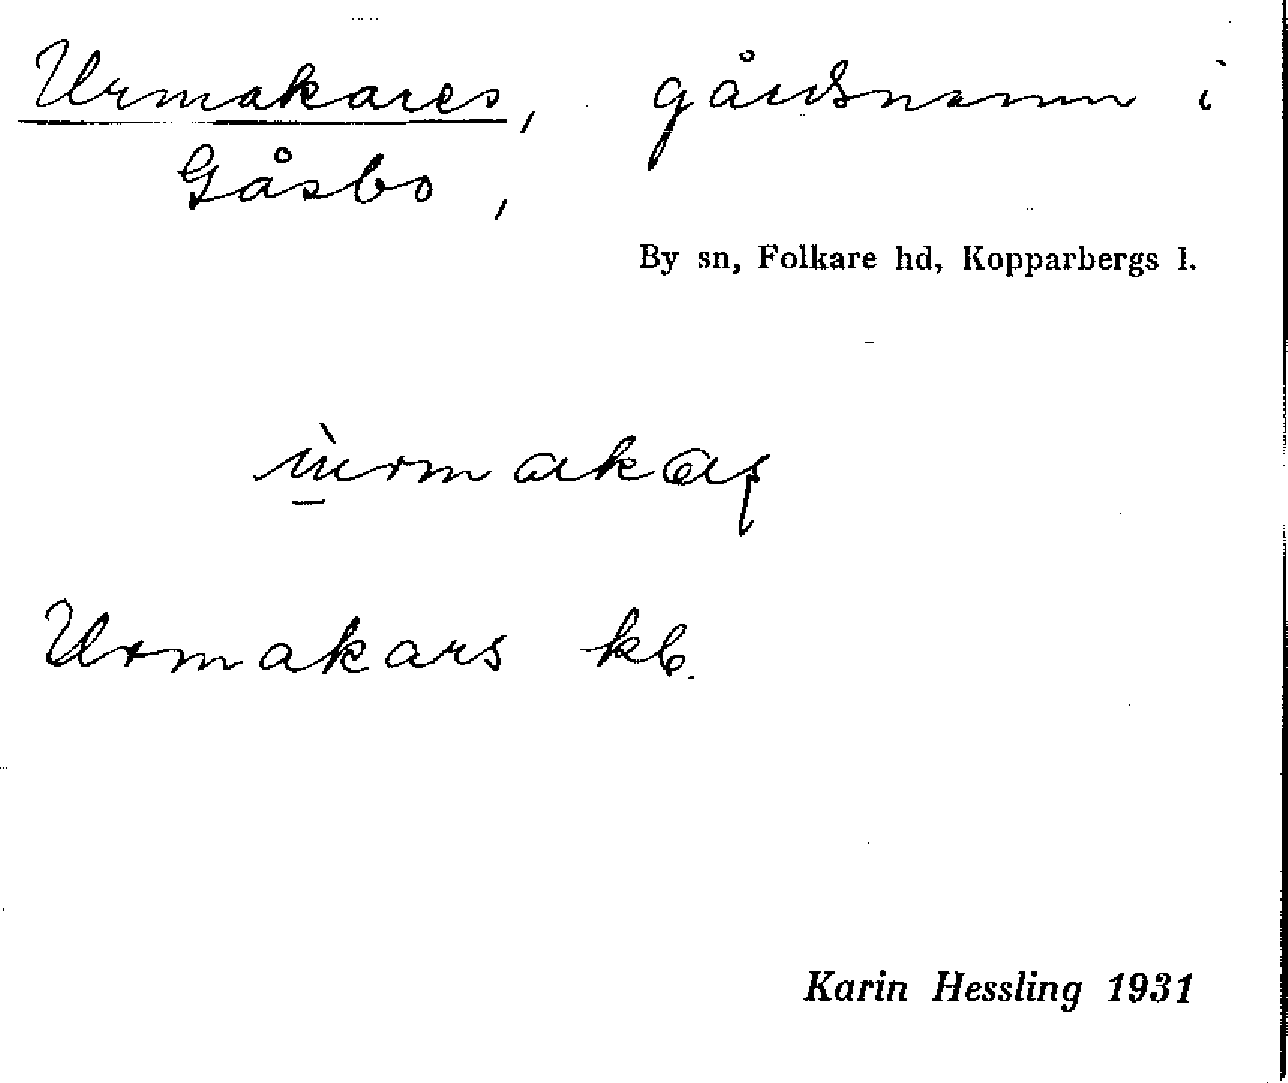 Urmakares, gårdsnamn i
Gåsbo,
By sn, Folkare hd, Kopparbergs l.
Urmakars kb.
Karin Hessling 1931